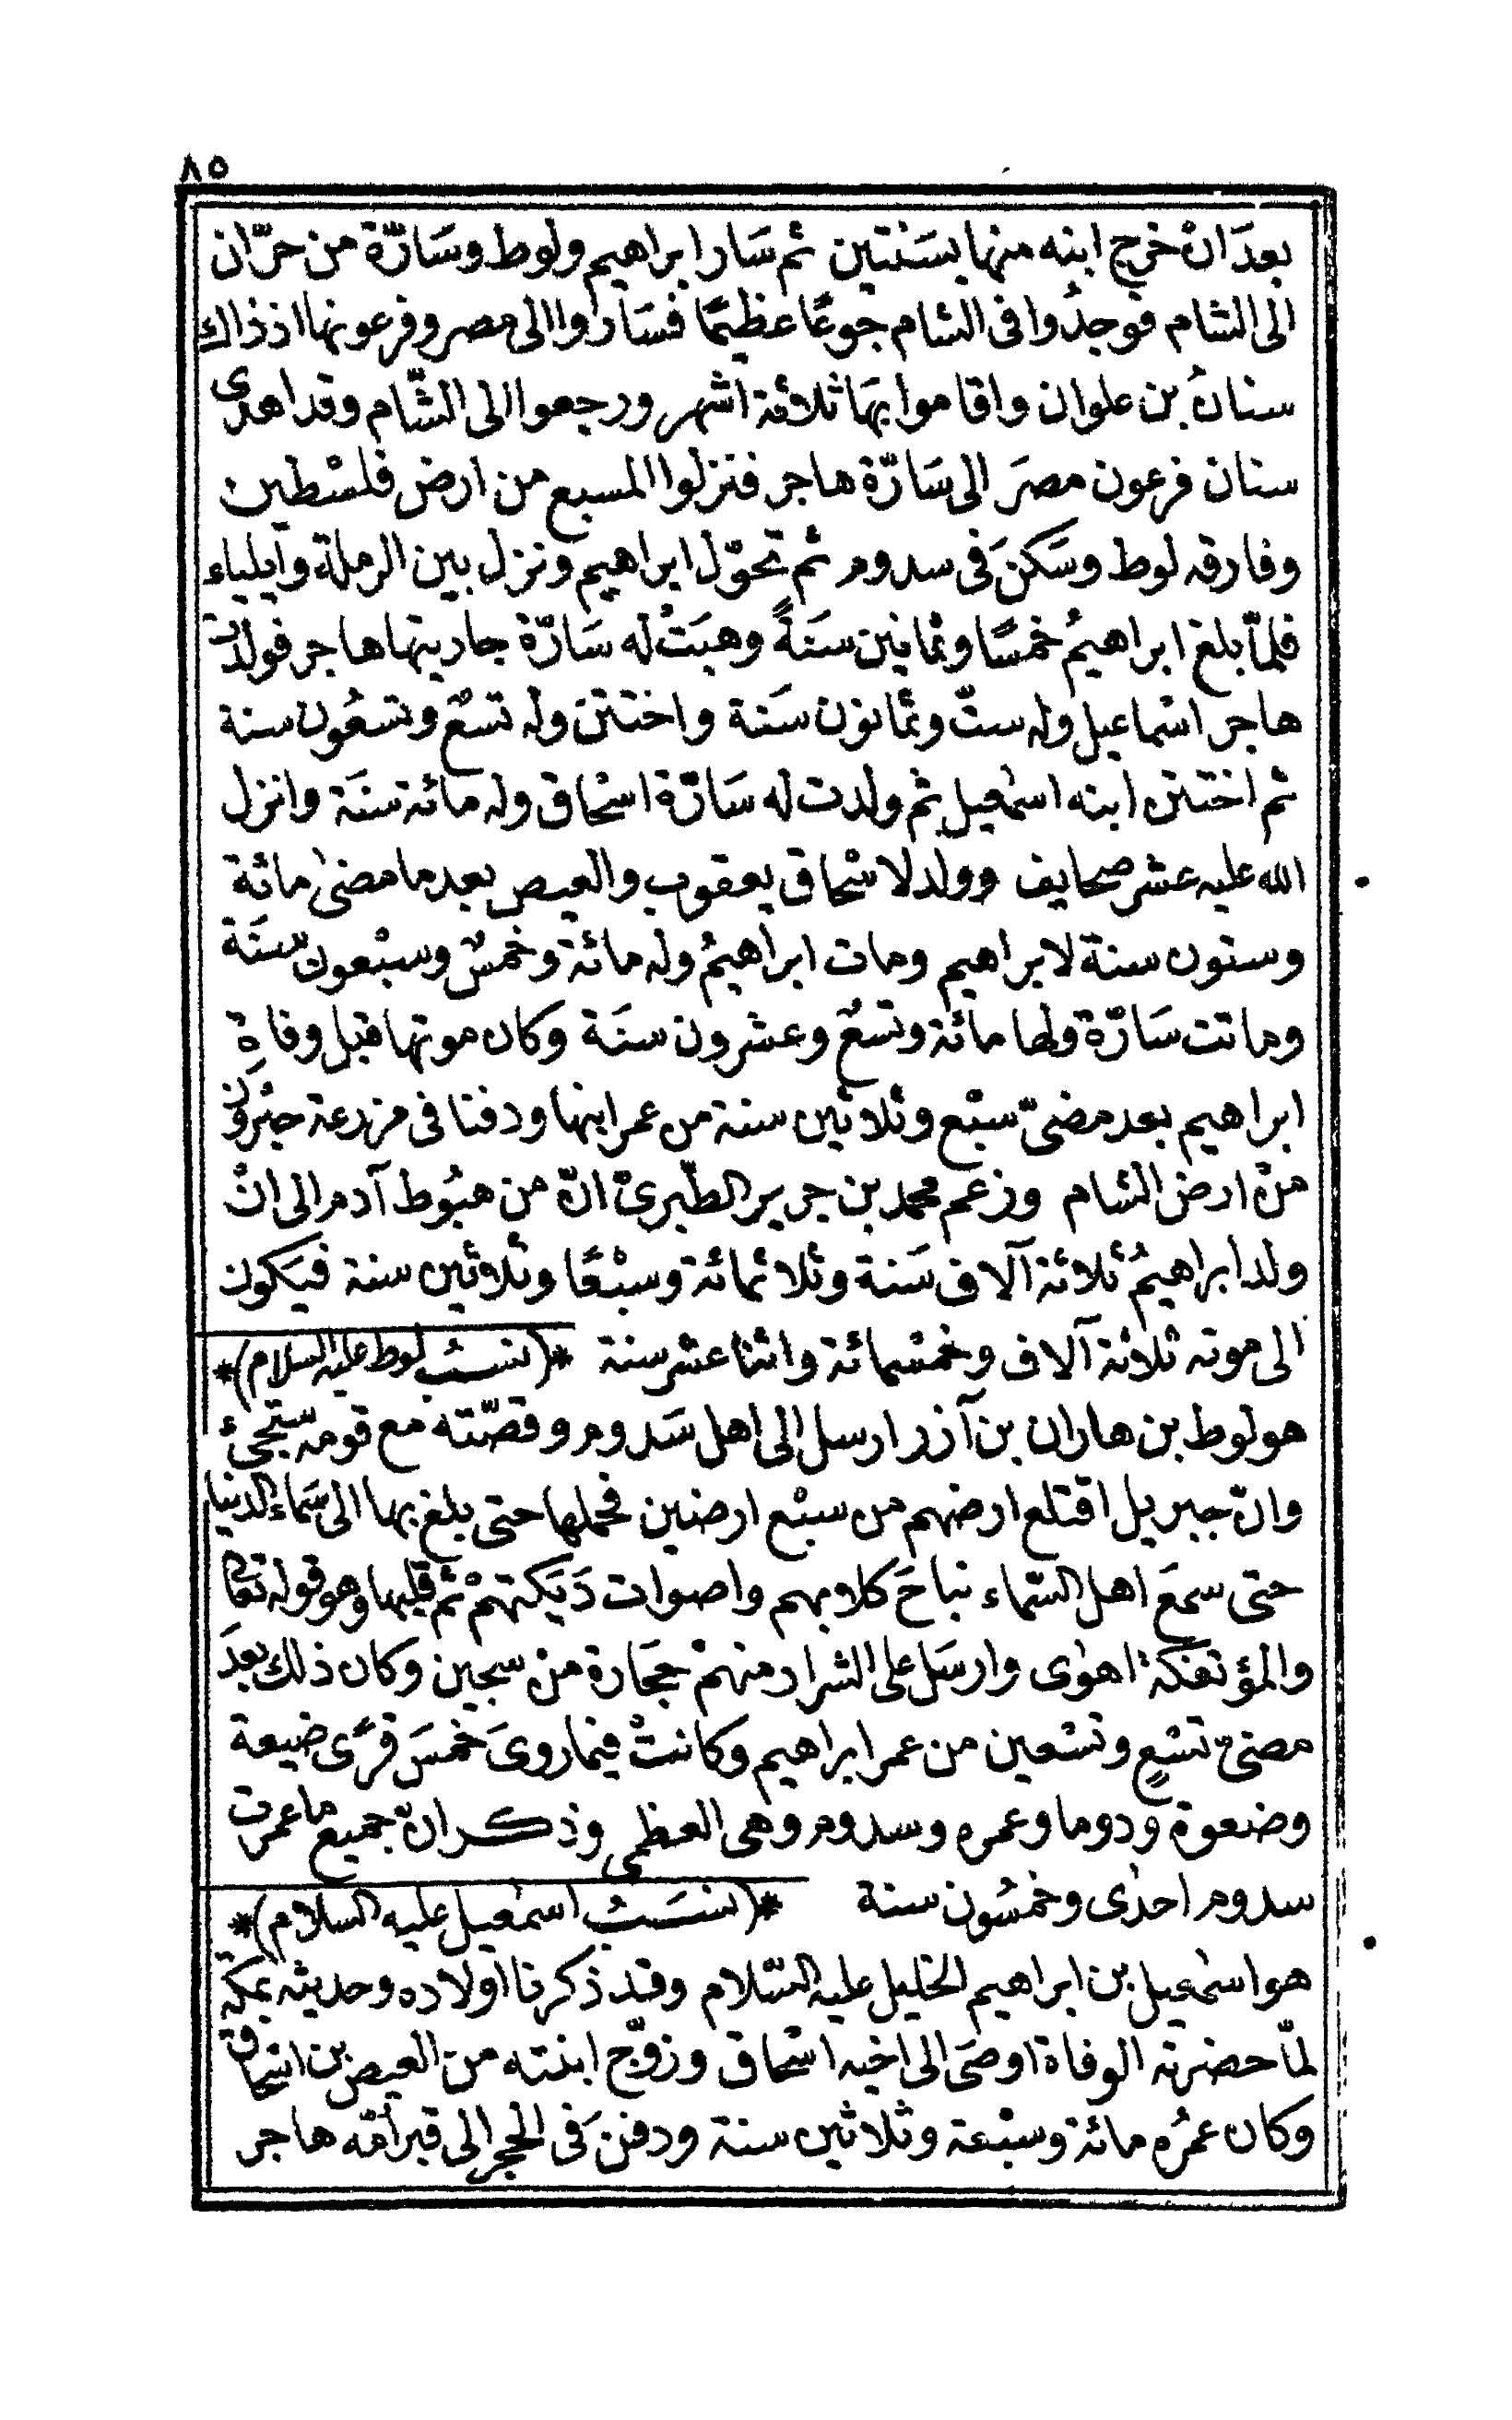 ٨٥
بعدَ انْ خرج ابنه منها بسَنتين ثم سَار ابراهيم ولوط وسَارّة من حرّان
الى الشام فوجدُوا فى الشام جوعًا عظيمًا فسَاروا الى مصر وفرعونها اذ ذاك
سنانُ بن علوان واقاموا بهَا ثلاثة اشهر ورجعوا الى الشّام وقد اهدى
سنان فرعون مصرَ الى سَارّة هاجر فنزلوا المسبع من ارض فلسْطين
وفارقه لوط وسَكنَ فى سدوم ثم تحوّل ابراهيم ونزل بين الرملة وايلياء
فلمّا بلغ ابراهيمُ خمسًا وثمانين سَنةً وهبَتْ له سَارّة جاريتها هاجر فولدت
هاجر اسْماعيل وله ستّ وثمانون سَنة واختتن وله تسعٌ وتسعُون سنة
ثم اختتن ابنه اسمٰعيل ثم ولدت له سَارّة اسْحاق وله مائة سنَة وانزل
الله عليه عشر صحايف وولد لاسْحاق يعقوب والعيص بعد ما مضىٰ مائة
وستون سنة لابراهيم ومات ابراهيمُ وله مائة وخمسٌ وسبْعون سنَة
وماتت سَارّة ولها مائة وتسعٌ وعشرون سنَة وكان موتها قبل وفاةِ
ابراهيم بعد مضىّ سبْع وثلاثين سنة من عمر ابنها ودفنا فى مزرعة حبْرون
منْ ارض الشام وزعم محمد بن جرير الطّبرىّ انّ من هبُوط آدم الى انْ
ولد ابراهيمُ ثلاثة آلاف سَنة وثلاثمائة وسبْعًا وثلاثين سنة فيَكون
الى موته ثلاثة آلاف وخمسْمائة واثنا عشر سنة *(نسبُ لوط عليه السلام)*
هو لوط بن هاران بن آزر ارسل الى اهل سَدوم وقصّته مع قومه ستجىء
وانّ جبريل اقتلع ارضهم من سبْع ارضين فحملها حتى بلغ بها الى سَماء الدنيا
حتى سمعَ اهل السّماء نباحَ كلابهم واصوات دَيَكتهمْ ثم قلبها وهو قوله تعالى
والمؤتفكة اهوٰى وارسَل على الشرار منهمْ حجَارة منْ سجين وكان ذلك بعدَ
مضىّ تسْعٍ وتسْعين من عمر ابراهيم وكانتْ فيما روىَ خمسَ قرًى ضيعة
وضعوة ودوما وعمره وسدوم وهى العظمى وذكر انّ جميع ما عمرت
سدوم احدٰى وخمسُون سنة *(نسَبُ اسمٰعيل عليه السلام)*
هو اسمٰعيل بن ابراهيم الخليل عليه السّلام وقد ذكرنا اولاده وحديثه بمكة
لمّا حضرته الوفاة اوصَى الى اخيه اسْحاق وزوّج ابنته من العيص بن اسْحاق
وكان عمرُه مائة وسبْعة وثلاثين سنة ودفنَ فى الحجر الى قبر امّه هاجر